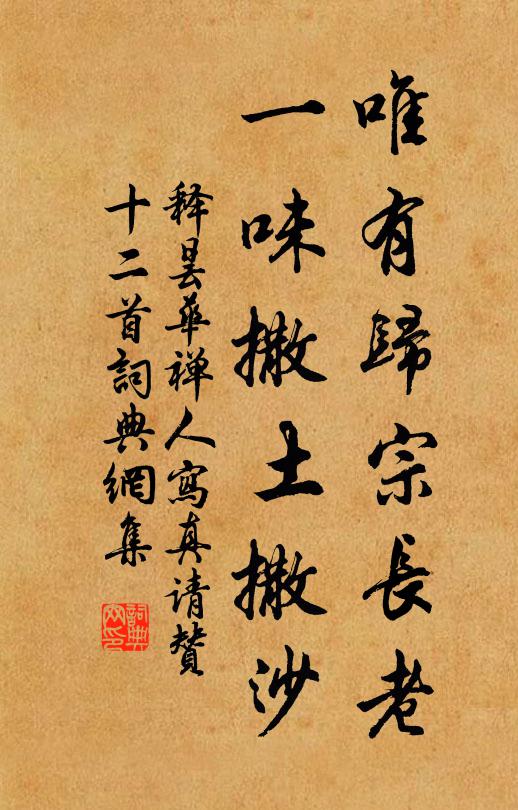 唯有歸宗長老
一味撒土撒沙
释曇華禅人寫真请贊
十二首詞典網集
詞典网印